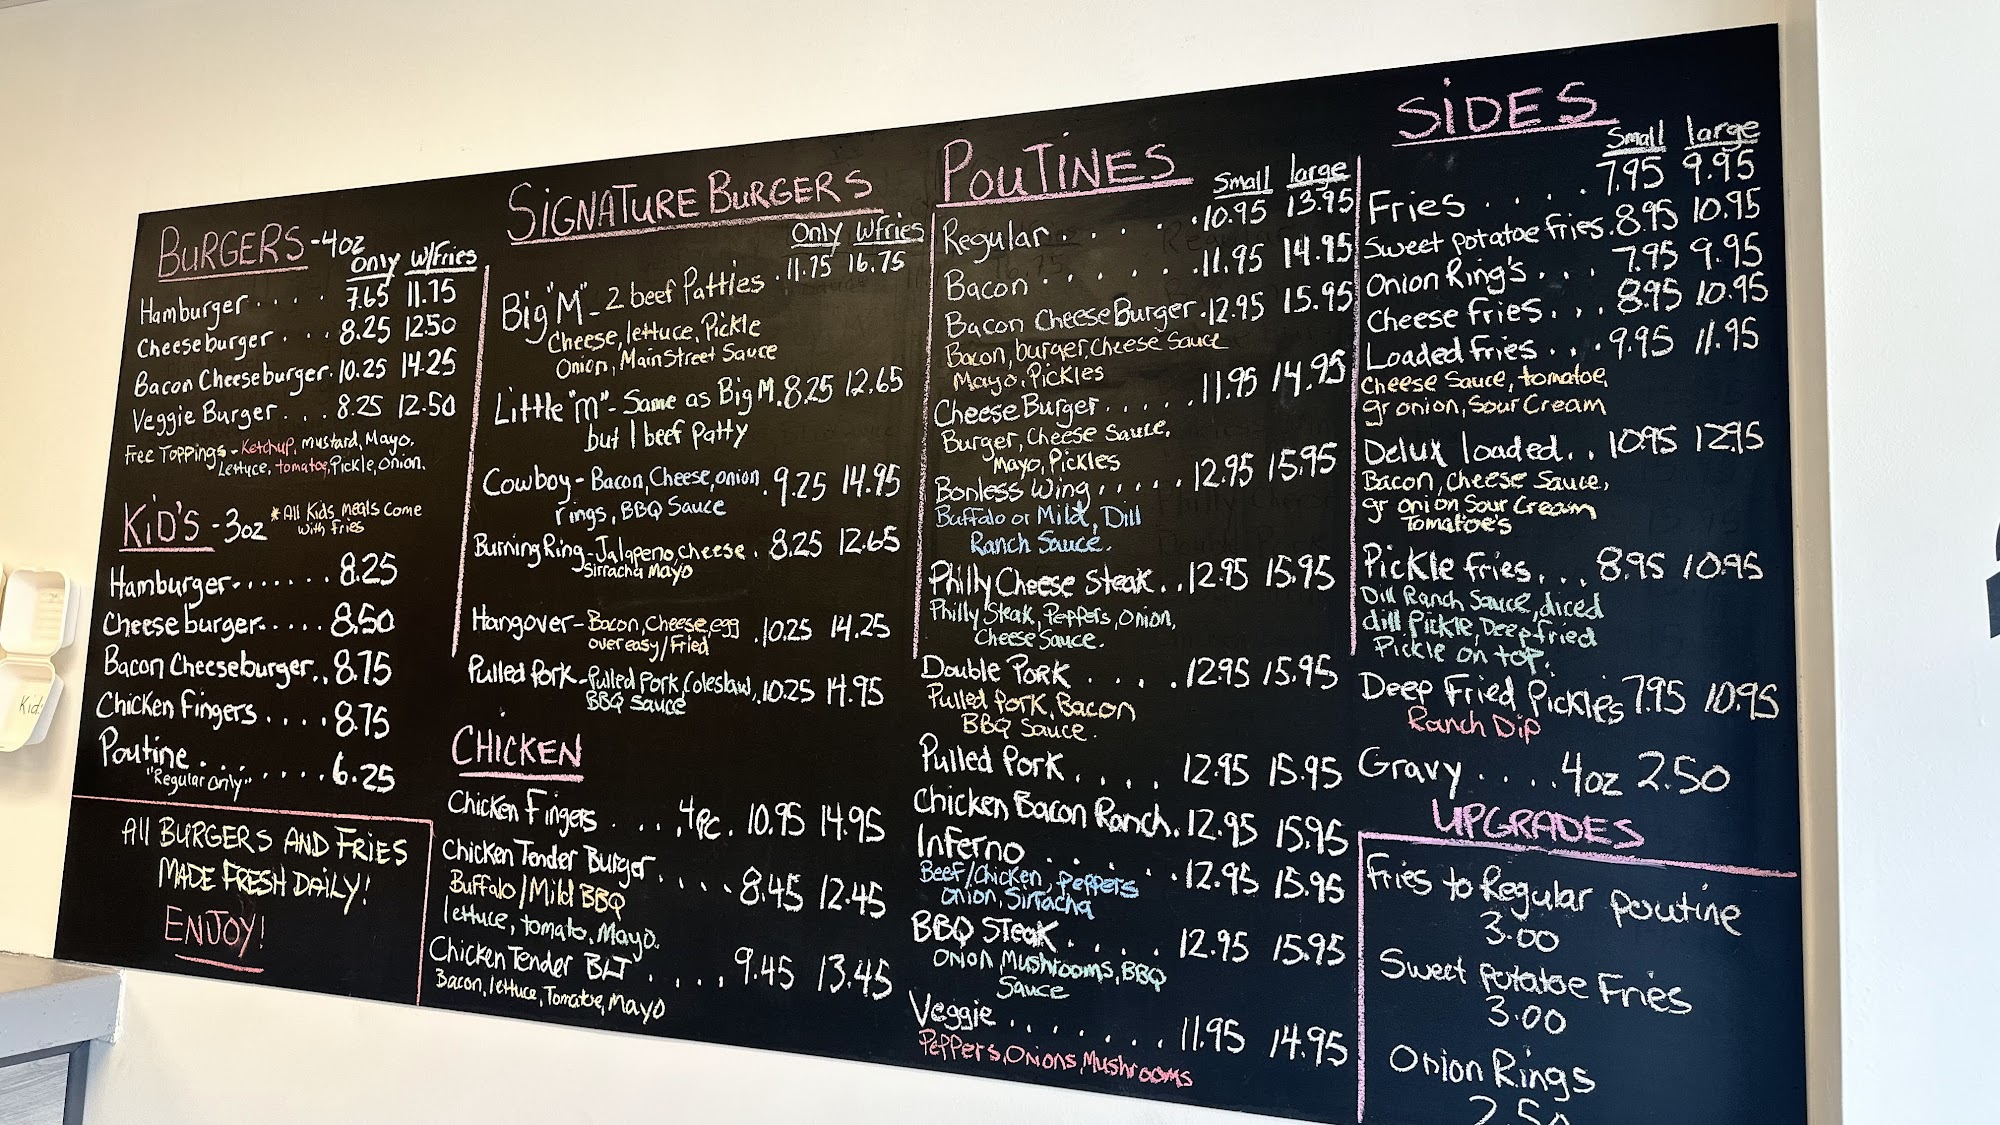 BURGERS - 4oz
Only W/Fries
Hamburger . . . . 7.65 11.75
Cheeseburger . . . 8.25 12.50
Bacon Cheeseburger . 10.25 14.25
Veggie Burger . . . 8.25 12.50
Free Toppings - Ketchup, mustard, Mayo,
Lettuce, tomatoe, Pickle, Onion.
KID'S - 3oz *All Kids meals Come
with fries
Hamburger . . . . . . . 8.25
Cheeseburger . . . . . 8.50
Bacon Cheeseburger . . 8.75
Chicken Fingers . . . . 8.75
Poutine . . . . . . . 6.25
"Regular only"
All BURGERS AND FRIES
MADE FRESH DAILY!
ENJOY!
SIGNATURE BURGERS
Only W/fries
Big "M" - 2 beef Patties . 11.75 16.75
Cheese, lettuce, Pickle
Onion, MainStreet Sauce
Little "M" - Same as Big M . 8.25 12.65
but 1 beef Patty
Cowboy - Bacon, Cheese, onion . 9.25 14.95
rings, BBQ Sauce
Burning Ring - Jalapeno, cheese . 8.25 12.65
Sirracha Mayo
Hangover - Bacon, Cheese, egg . 10.25 14.25
over easy/Fried
Pulled Pork - Pulled Pork, Coleslaw, . 10.25 14.95
BBQ Sauce
CHICKEN
Chicken Fingers . . . . 4pc . 10.95 14.95
Chicken Tender Burger . . . . 8.45 12.45
Buffalo/Mild BBQ
lettuce, tomato, Mayo.
Chicken Tender BLT . . . . 9.45 13.45
Bacon, lettuce, Tomatoe, Mayo
POUTINES
Small large
Regular . . . . . 10.95 13.95
Bacon . . . . . . 11.95 14.95
Bacon Cheese Burger . 12.95 15.95
Bacon, burger, Cheese Sauce
Mayo, Pickles
Cheese Burger . . . . . 11.95 14.95
Burger, Cheese Sauce,
Mayo, Pickles
Bonless Wing . . . . . 12.95 15.95
Buffalo or Mild, Dill
Ranch Sauce.
Philly Cheese Steak . . 12.95 15.95
Philly Steak, Peppers, Onion,
Cheese Sauce.
Double Pork . . . . 12.95 15.95
Pulled Pork, Bacon
BBQ Sauce.
Pulled Pork . . . . 12.95 15.95
Chicken Bacon Ranch . 12.95 15.95
Inferno . . . . . . 12.95 15.95
Beef/Chicken, Peppers
onion, Sirracha
BBQ Steak . . . . 12.95 15.95
Onion, Mushrooms, BBQ
Sauce
Veggie . . . . . . . 11.95 14.95
Peppers, Onions, Mushrooms
SIDES
Small large
Fries . . . . . 7.95 9.95
Sweet potatoe Fries . 8.95 10.95
Onion Ring's . . . 7.95 9.95
Cheese fries . . . 8.95 10.95
Loaded Fries . . . 9.95 11.95
Cheese Sauce, tomatoe,
gr onion, Sour Cream
Delux loaded . . 10.95 12.95
Bacon, Cheese Sauce,
gr onion Sour Cream
Tomatoe's
Pickle fries . . . 8.95 10.95
Dill Ranch Sauce, diced
dill Pickle, Deep fried
Pickle on top.
Deep Fried Pickles 7.95 10.95
Ranch Dip
Gravy . . . . 4oz 2.50
UPGRADES
Fries to Regular poutine
3.00
Sweet potatoe Fries
3.00
Onion Rings
2.50
Kid